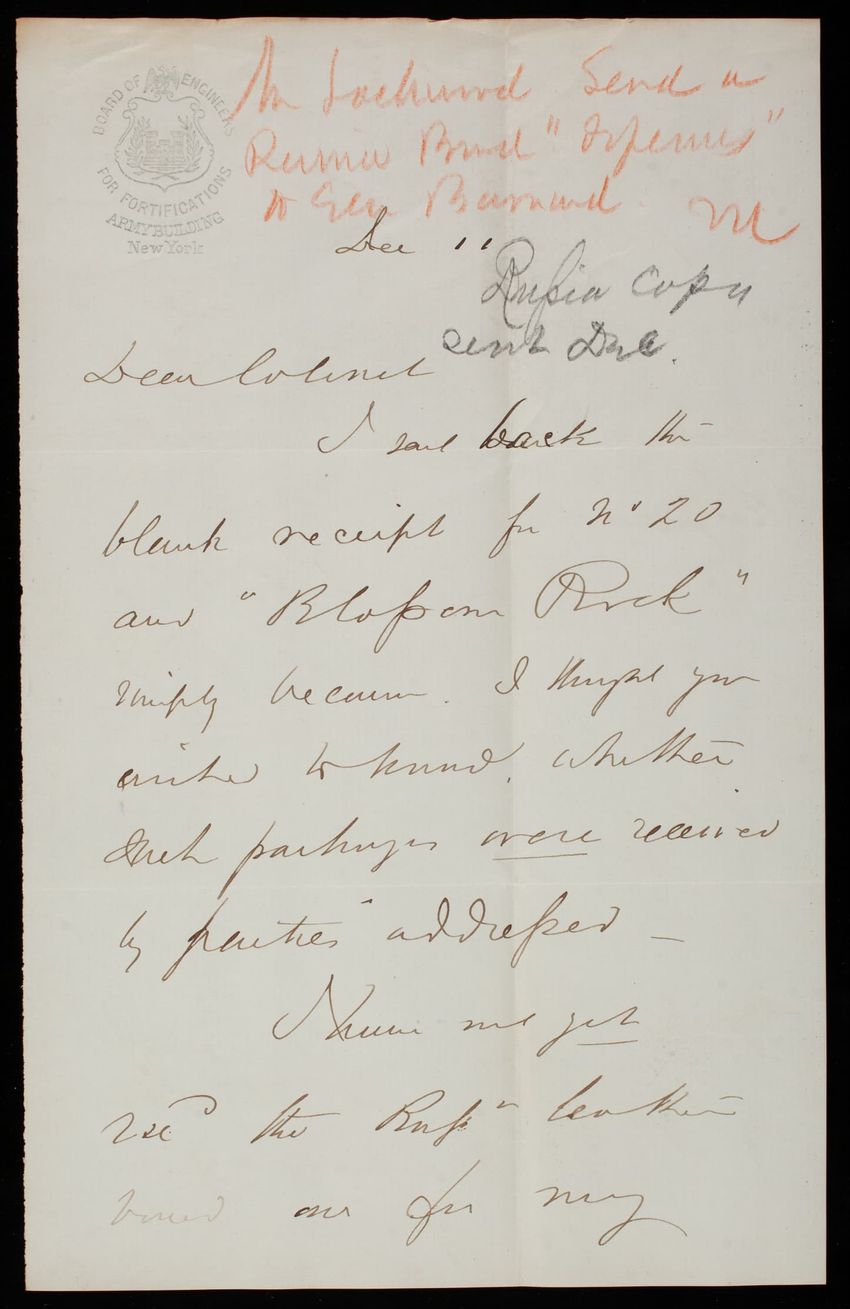 BOARD OF ENGINEERS
FOR FORTIFICATIONS
ARMY BUILDING
New York
Mr Lockwood Send a
Russia Bound "Defenses"
to Gen Barnard. M
Dec 11
Russia Copy
sent Dec.
Dear Colonel
I send back the
blank receipt for No 20
and "Blossom Rock"
simply because I thought you
wished to know whether
such packages were received
by parties addressed —
I have not yet
recd the Russn leather
bound one for my